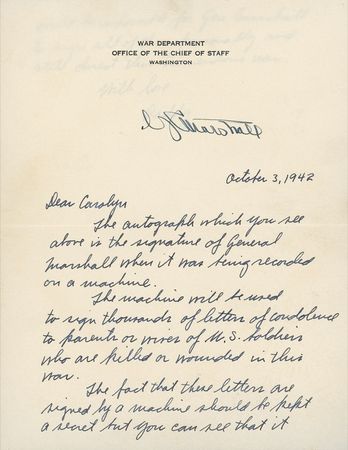 WAR DEPARTMENT
OFFICE OF THE CHIEF OF STAFF
WASHINGTON
G. C. Marshall
October 3, 1942
Dear Carolyn
The autograph which you see
above is the signature of General
Marshall when it was being recorded
on a machine.
The machine will be used
to sign thousands of letters of condolence
to parents or wives of U.S. Soldiers
who are killed or wounded in this
war.
The fact that these letters are
signed by a machine should be kept
a secret but you can see that it